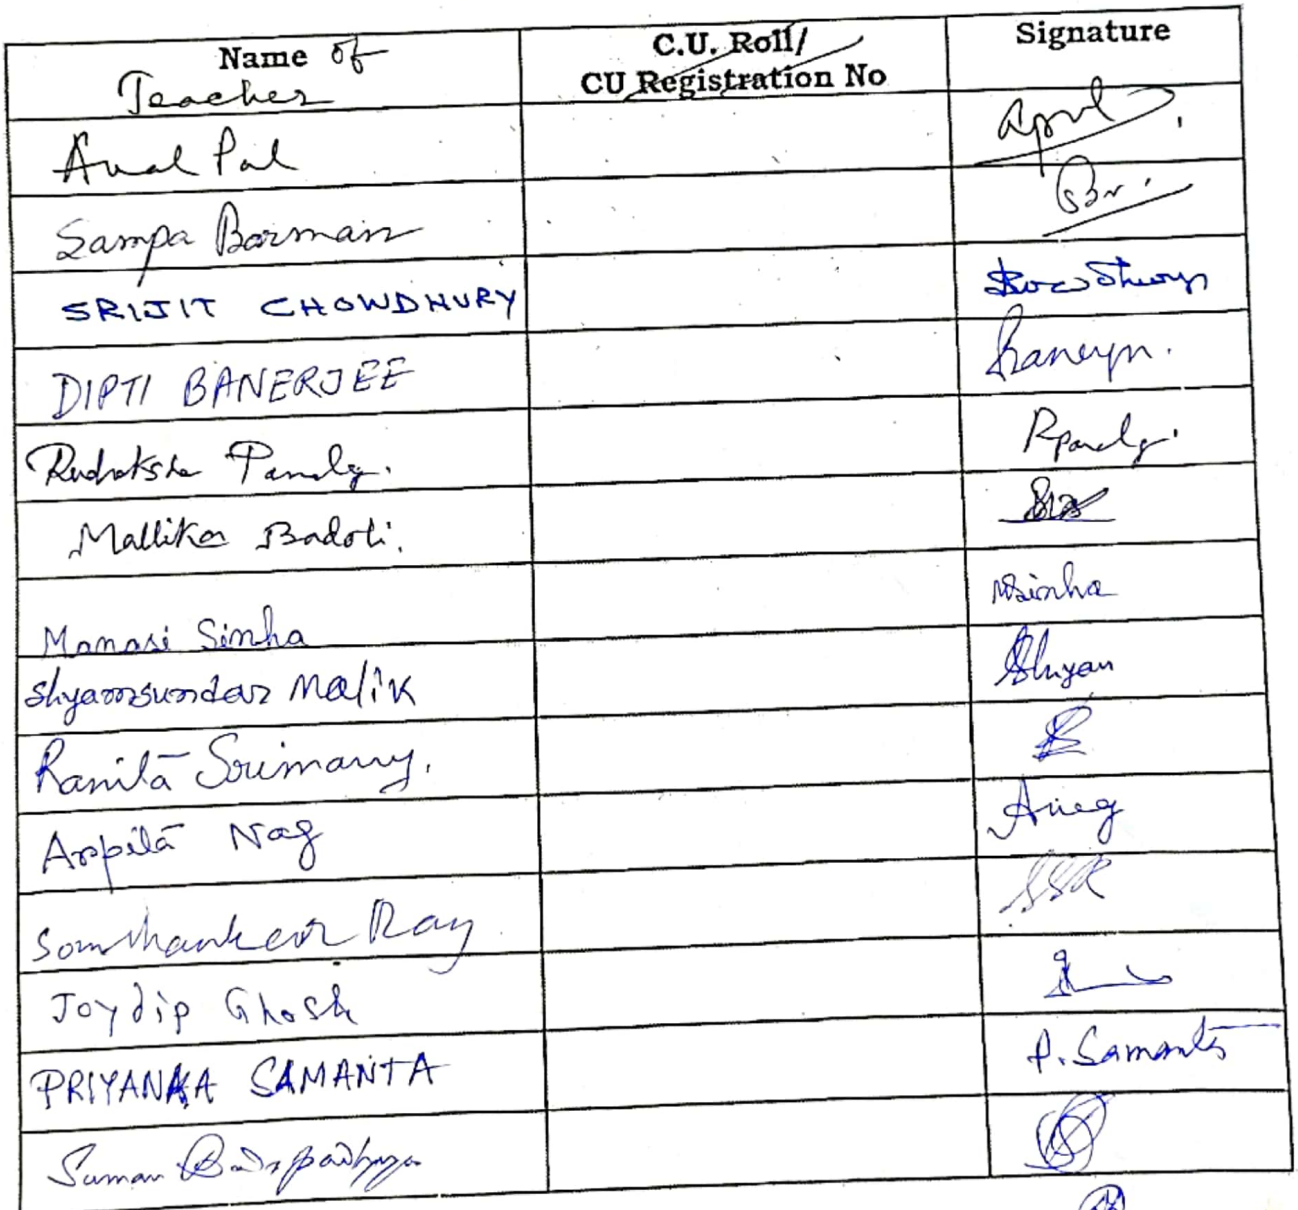 Name of Teacher C.U. Roll/ CU Registration No Signature
Amal Pal
Sampa Barman
SRIJIT CHOWDHURY
DIPTI BANERJEE
Rudraksha Pandey.
Mallika Badoti.
Manasi Sinha Msinha
Shyamsundar Malik Shyam
Ranita Srimany.
Arpita Nag
Somshankar Ray SSR
Joydip Ghosh
PRIYANKA SAMANTA P. Samanta
Suman